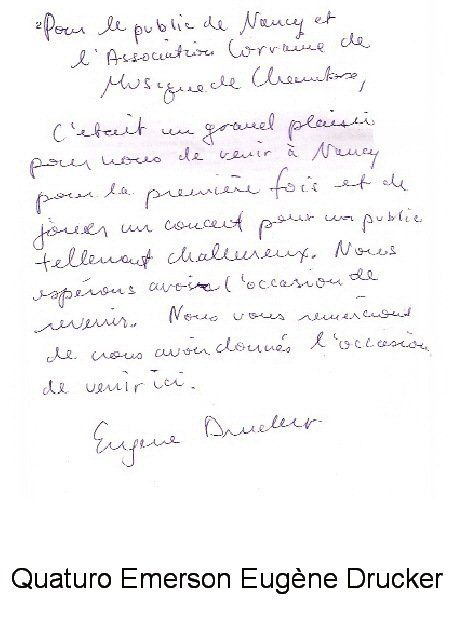 Pour le public de Nancy et
l'Association Lorraine de
Musique de Chambre,
C'était un grand plaisir
pour nous de venir à Nancy
pour la première fois et de
jouer un concert pour un public
tellement chaleureux. Nous
espérons avoir l'occasion de
revenir. Nous vous remercions
de nous avoir donnés l'occasion
de venir ici.
Eugene Drucker
Quaturo Emerson Eugène Drucker